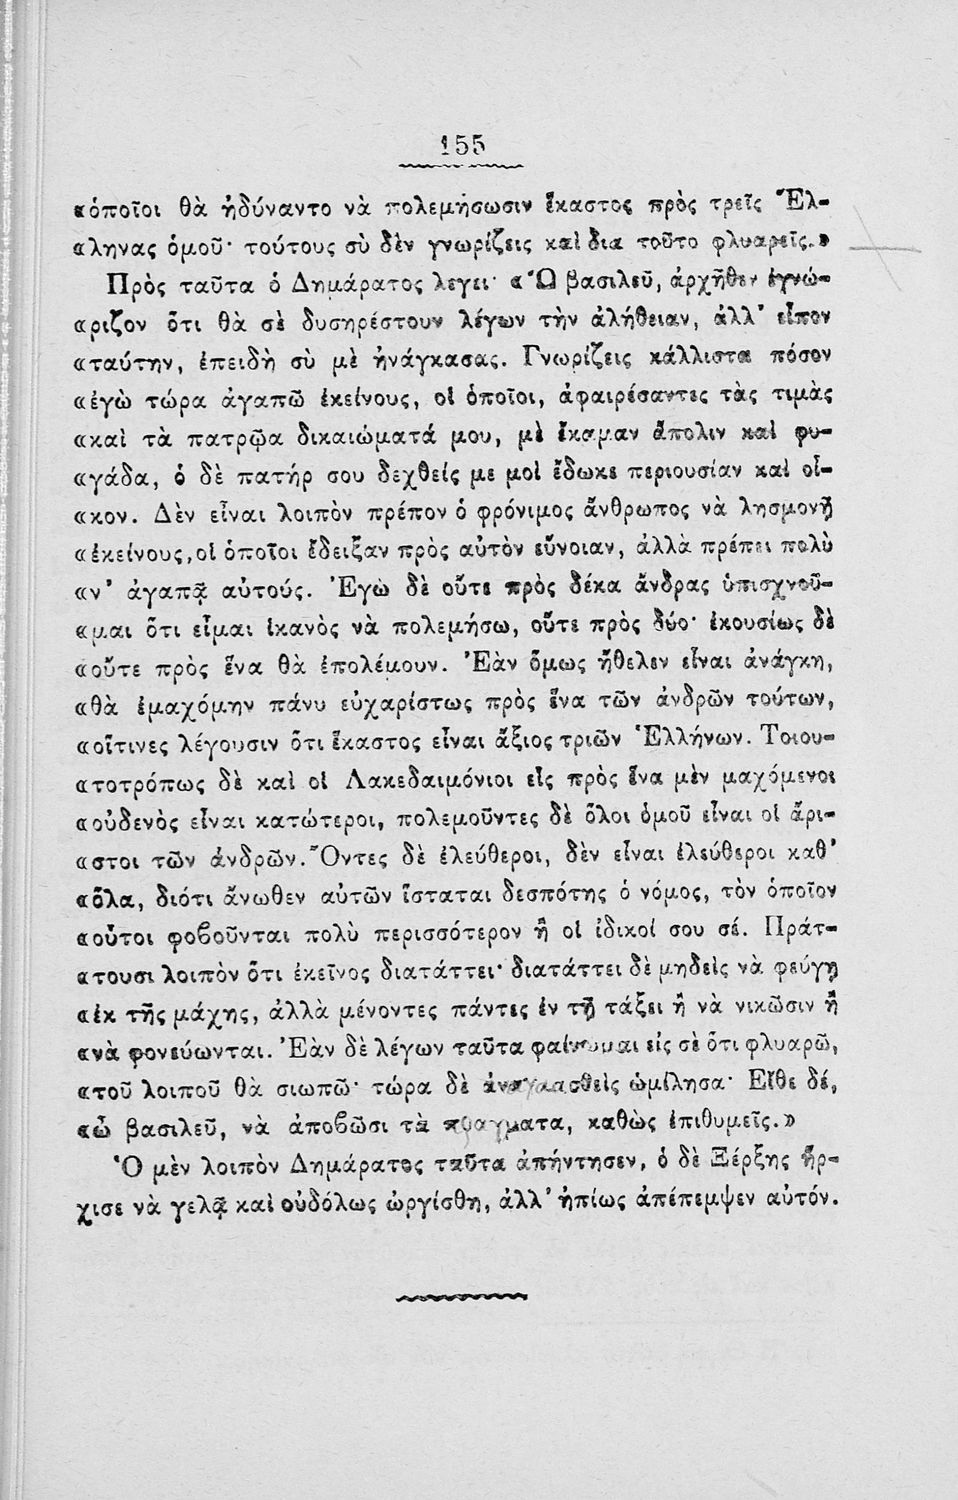 155
«ὁποῖοι θὰ ἠδύναντο νὰ πολεμήσωσιν ἕκαστος πρὸς τρεῖς Ἕλ-
«ληνας ὁμοῦ· τούτους σὺ δὲν γνωρίζεις καὶ δια τοῦτο φλυαρεῖς.»
Πρὸς ταῦτα ὁ Δημάρατος λεγει· «Ὦ βασιλεῦ, ἀρχῆθεν ἐγνώ-
«ριζον ὅτι θὰ σὲ δυσηρέστουν λέγων τὴν ἀλήθειαν, ἀλλ' εἶπον
«ταύτην, ἐπειδὴ σὺ μὲ ἠνάγκασας. Γνωρίζεις κάλλιστα πόσον
«ἐγὼ τώρα ἀγαπῶ ἐκείνους, οἱ ὁποῖοι, ἀφαιρέσαντες τὰς τιμὰς
«καὶ τὰ πατρῷα δικαιώματά μου, μὲ ἔκαμαν ἄπολιν καὶ φυ-
«γάδα, ὁ δὲ πατήρ σου δεχθείς με μοὶ ἔδωκε περιουσίαν καὶ οἶ-
«κον. Δὲν εἶναι λοιπὸν πρέπον ὁ φρόνιμος ἄνθρωπος νὰ λησμονῇ
«ἐκείνους, οἱ ὁποῖοι ἔδειξαν πρὸς αὐτὸν εὔνοιαν, ἀλλὰ πρέπει πολὺ
«ν' ἀγαπᾷ αὐτούς. Ἐγὼ δὲ οὔτε πρὸς δέκα ἄνδρας ὑπισχνοῦ-
«μαι ὅτι εἶμαι ἱκανὸς νὰ πολεμήσω, οὔτε πρὸς δύο· ἑκουσίως δὲ
«οὔτε πρὸς ἕνα θὰ ἐπολέμουν. Ἐὰν ὅμως ἤθελεν εἶναι ἀνάγκη,
«θὰ ἐμαχόμην πάνυ εὐχαρίστως πρὸς ἕνα τῶν ἀνδρῶν τούτων,
«οἵτινες λέγουσιν ὅτι ἕκαστος εἶναι ἄξιος τριῶν Ἑλλήνων. Τοιου-
«τοτρόπως δὲ καὶ οἱ Λακεδαιμόνιοι εἷς πρὸς ἕνα μὲν μαχόμενοι
«οὐδενὸς εἶναι κατώτεροι, πολεμοῦντες δὲ ὅλοι ὁμοῦ εἶναι οἱ ἄρι-
«στοι τῶν ἀνδρῶν. Ὄντες δὲ ἐλεύθεροι, δὲν εἶναι ἐλεύθεροι καθ'
«ὅλα, διότι ἄνωθεν αὐτῶν ἵσταται δεσπότης ὁ νόμος, τὸν ὁποῖον
«οὗτοι φοβοῦνται πολὺ περισσότερον ἢ οἱ ἰδικοί σου σέ. Πράτ-
«τουσι λοιπὸν ὅτι ἐκεῖνος διατάττει· διατάττει δὲ μηδεὶς νὰ φεύγῃ
«ἐκ τῆς μάχης, ἀλλὰ μένοντες πάντες ἐν τῇ τάξει ἢ νὰ νικῶσιν ἢ
«νὰ φονεύωνται. Ἐὰν δὲ λέγων ταῦτα φαίνωμαι εἰς σὲ ὅτι φλυαρῶ,
«τοῦ λοιποῦ θὰ σιωπῶ· τώρα δὲ ἀναγκασθεὶς ὡμίλησα· Εἴθε δέ,
«ὦ βασιλεῦ, νὰ ἀποβῶσι τὰ πραγματα, καθὼς ἐπιθυμεῖς.»
Ὁ μὲν λοιπὸν Δημάρατος ταῦτα ἀπήντησεν, ὁ δὲ Ξέρξης ἤρ-
χισε νὰ γελᾷ καὶ οὐδόλως ὠργίσθη, ἀλλ' ἠπίως ἀπέπεμψεν αὐτόν.